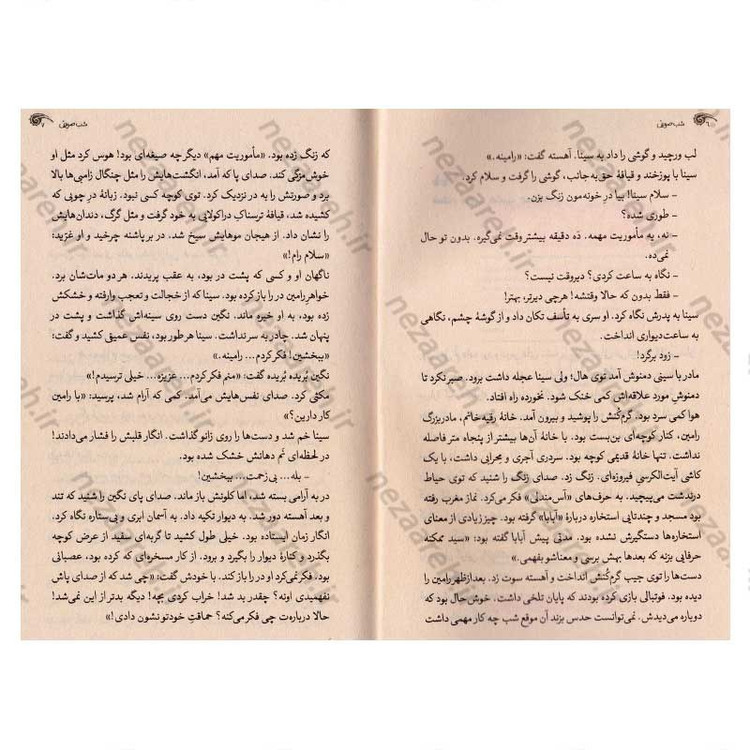 ۶ شب صورتی
لب ورچید و گوشی را داد به سینا. آهسته گفت: «رامینه.»
سینا با پوزخند و قیافهٔ حق‌به‌جانب، گوشی را گرفت و سلام کرد.
– سلام سینا! بیا در خونه‌مون زنگ بزن.
– طوری شده؟
– نه، یه مأموریت مهمه. ده دقیقه بیشتر وقت نمی‌گیره. بدون تو حال
نمی‌ده.
– نگاه به ساعت کردی؟ دیروقت نیست؟
– فقط بدون که حالا وقتشه! هرچی دیرتر، بهتر!
سینا به پدرش نگاه کرد. او سری به تأسف تکان داد و از گوشهٔ چشم، نگاهی
به ساعت دیواری انداخت.
– زود برگرد!
مادر با سینی دمنوش آمد توی هال؛ ولی سینا عجله داشت برود. صبر نکرد تا
دمنوشِ مورد علاقه‌اش کمی خنک شود. نخورده راه افتاد.
هوا کمی سرد بود. گرم‌کُنش را پوشید و بیرون آمد. خانهٔ رقیه‌خانم، مادربزرگ
رامین، کنار کوچه‌ای بن‌بست بود. با خانهٔ آن‌ها بیشتر از پنجاه متر فاصله
نداشت. تنها خانهٔ قدیمی کوچه بود. سردری آجری و محرابی داشت، با یک
کاشی آیت‌الکرسی فیروزه‌ای. زنگ زد. صدای زنگ را شنید که توی حیاط
درندشت می‌پیچید. به حرف‌های «آس‌مندلی» فکر می‌کرد. نماز مغرب رفته
بود مسجد و چندتایی استخاره دربارهٔ «آبابا» گرفته بود. چیز زیادی از معنای
استخاره‌ها دستگیرش نشده بود. مدتی پیش آبابا گفته بود: «سید ممکنه
حرفایی بزنه که بعدها بهش برسی و معناشو بفهمی.»
دست‌ها را توی جیب گرم‌کُنش انداخت و آهسته سوت زد. بعدازظهر رامین را
دیده بود. فوتبالی بازی کرده بودند که پایان تلخی داشت. خوش‌حال بود که
دوباره می‌دیدش. نمی‌توانست حدس بزند آن موقع شب چه کار مهمی داشت
شب صورتی ۷
که زنگ زده بود. «مأموریت مهم» دیگر چه صیغه‌ای بود! هوس کرد مثل او
خوش‌مزگی کند. صدای پا که آمد، انگشت‌هایش را مثل چنگال زامبی‌ها بالا
برد و صورتش را به در نزدیک کرد. توی کوچه کسی نبود. زبانهٔ درِ چوبی که
کشیده شد، قیافهٔ ترسناک دراکولایی به خود گرفت و مثل گرگ، دندان‌هایش
را نشان داد. از هیجان موهایش سیخ شد. در بر پاشنه چرخید و او غرّید:
«سلام رام!»
ناگهان او و کسی که پشت در بود، به عقب پریدند. هر دو مات‌شان برد.
خواهرِ رامین در را باز کرده بود. سینا که از خجالت و تعجب وارفته و خشکش
زده بود، به او خیره ماند. نگین دست روی سینه‌اش گذاشت و پشت در
پنهان شد. چادر به سر نداشت. سینا هرطور بود، نفس عمیق کشید و گفت:
«ببخشین! فکر کردم... رامینه.»
نگین بُریده بُریده گفت: «منم فکر کردم... عزیزه... خیلی ترسیدم!»
مکثی کرد. صدای نفس‌هایش می‌آمد. کمی که آرام شد، پرسید: «با رامین
کار دارین؟»
سینا خم شد و دست‌ها را روی زانو گذاشت. انگار قلبش را فشار می‌دادند!
در لحظه‌ای نَم دهانش خشک شده بود.
– بله... بی‌زحمت... ببخشین!
در به آرامی بسته شد، اما کلونش باز ماند. صدای پای نگین را شنید که تند
و بعد آهسته دور شد. به دیوار تکیه داد. به آسمان ابری و بی‌ستاره نگاه کرد.
انگار زمان ایستاده بود. خیلی طول کشید تا گربه‌ای سفید از عرض کوچه
بگذرد و کنارهٔ دیوار را بگیرد و برود. از کار مسخره‌ای که کرده بود، عصبانی
بود. فکر نمی‌کرد او در را باز کند. با خودش گفت: «چی شد که از صدای پاش
نفهمیدی اونه؟ چقدر بد شد! خراب کردی بچه! دیگه بدتر از این نمی‌شد!
حالا درباره‌ت چی فکر می‌کنه؟ حماقتِ خودتو نشون دادی!»
nezaareh.ir